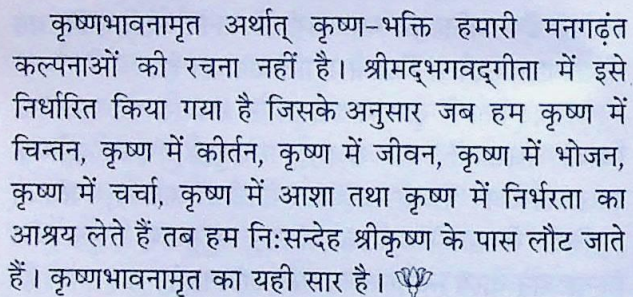 कृष्णभावनामृत अर्थात् कृष्ण-भक्ति हमारी मनगढ़ंत
कल्पनाओं की रचना नहीं है। श्रीमद्‌भगवद्‌गीता में इसे
निर्धारित किया गया है जिसके अनुसार जब हम कृष्ण में
चिन्तन, कृष्ण में कीर्तन, कृष्ण में जीवन, कृष्ण में भोजन,
कृष्ण में चर्चा, कृष्ण में आशा तथा कृष्ण में निर्भरता का
आश्रय लेते हैं तब हम नि:सन्देह श्रीकृष्ण के पास लौट जाते
हैं। कृष्णभावनामृत का यही सार है।